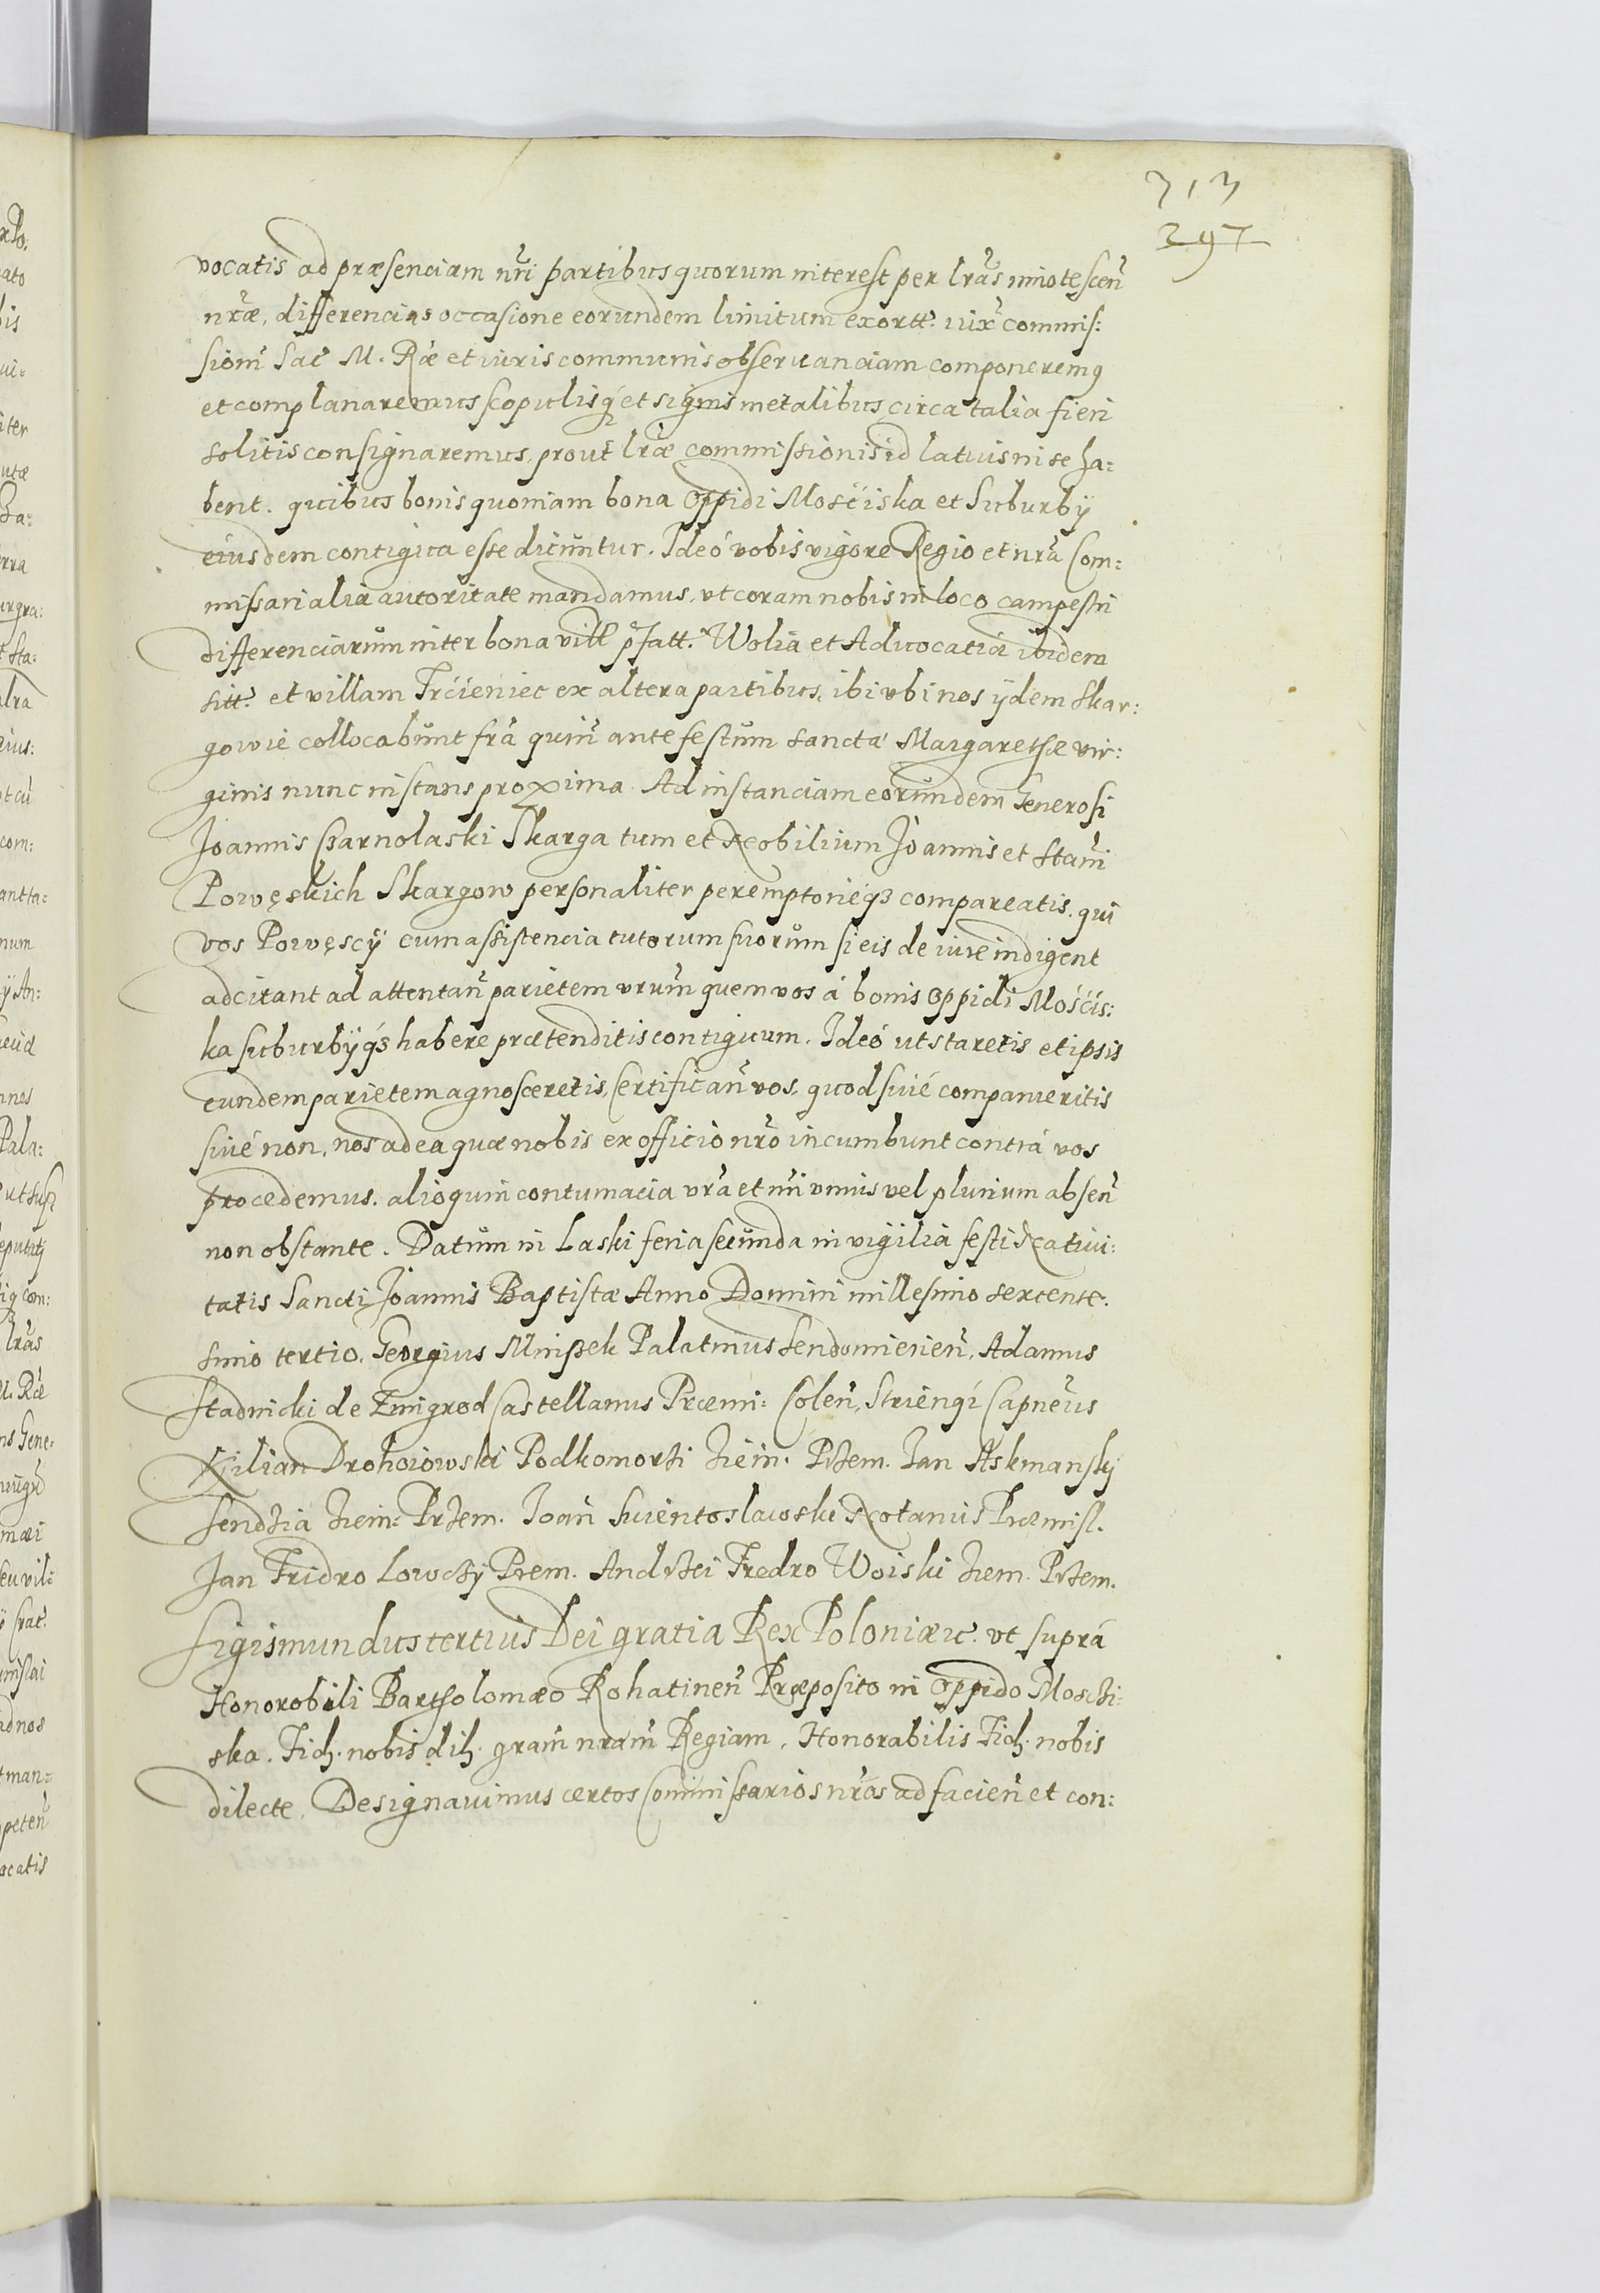 313
297
vocatis ad præsenciam nr̃i partibus quorum interest per lr̃as innotescen̄
nr̃æ, differencias occasione eorundem limitum exortt. iux̃ commis:
sion̄ Sac̃ M. Ræ et iuris communis obseruanciam componeremus
et complanaremus scopulisq́ et signis metalibus circa talia fieri
solitis consignaremus, prout lr̃æ commissionis id latius in se ha:
bent. quibus bonis quoniam bona Oppidi Mościska et Suburbÿ
eiusdem contigua esse dicuntur. Ideó vobis vigore Regio et nr̃a Com:
missariali autoritate mandamus, vt coram nobis in loco campestri
differenciarum inter bona vill pfatt. Wolia et Aduocatia ibidem
sitt. et villam Trćieniec ex altera partibus, ibi vbi nos ÿdem Skar:
gowie collocabunt fr̃a quin̄ ante festum sanctæ Margarethæ vir:
ginis nunc instans proxima. Ad instanciam eorundem Generosi
Joannis Czarnolaski Skarga tum et Nobilium Joannis et Stan̄i
Powęskich Skargow personaliter peremptorieqз compareatis, qui
vos Powęscÿ cum assistencia tutorum suorum si eis de iure indigent
adcitant ad attentan̄ parietem vrum̄ quem vos á bonis Oppidi Mośćis:
ka suburbÿqз habere prætenditis contiguum. Ideó ut staretis et ipsis
eundem parietem agnosceretis, Certifican̄ vos, quod siué comparueritis
siué non, nos ad ea quæ nobis ex officio nr̃o incumbunt contrá vos
procedemus. alioquin contumacia vr̃a et nr̃i vnius vel plurium absen̄
non obstante. Datum in Laski feria secunda in vigilia festi Natiui:
tatis Sancti Joannis Baptistæ Anno Domini millesimo sexcente:
simo tertio. Georgius Mniszek Palatinus Sendomirien̄, Adamus
Stadnicki de Zmigrod Castellanus Præmi: Colen̄, Striengí Capneus
Kilian Drohoiowski Podkomorzi Ziem. Przem. Jan Askmanskÿ
Sendzia Ziem: Przem. Joan̄ Swientoslawski Notarius Præmisl.
Jan Fridro Lowczÿ Prem. Andrzei Fredro Woiski Ziem. Przem.
Sigismundus tertius Dei gratia Rex Poloniæ ꝛc. vt suprá
Honorobili Bartholomæo Rohatinen̄ Præposito in Oppido Mosczi:
ska. Fid. nobis dil. gram̄ nram̄ Regiam. Honorabilis Fid. nobis
dilecte. Designauimus certos Commissarios nr̃os ad facien̄ et con: